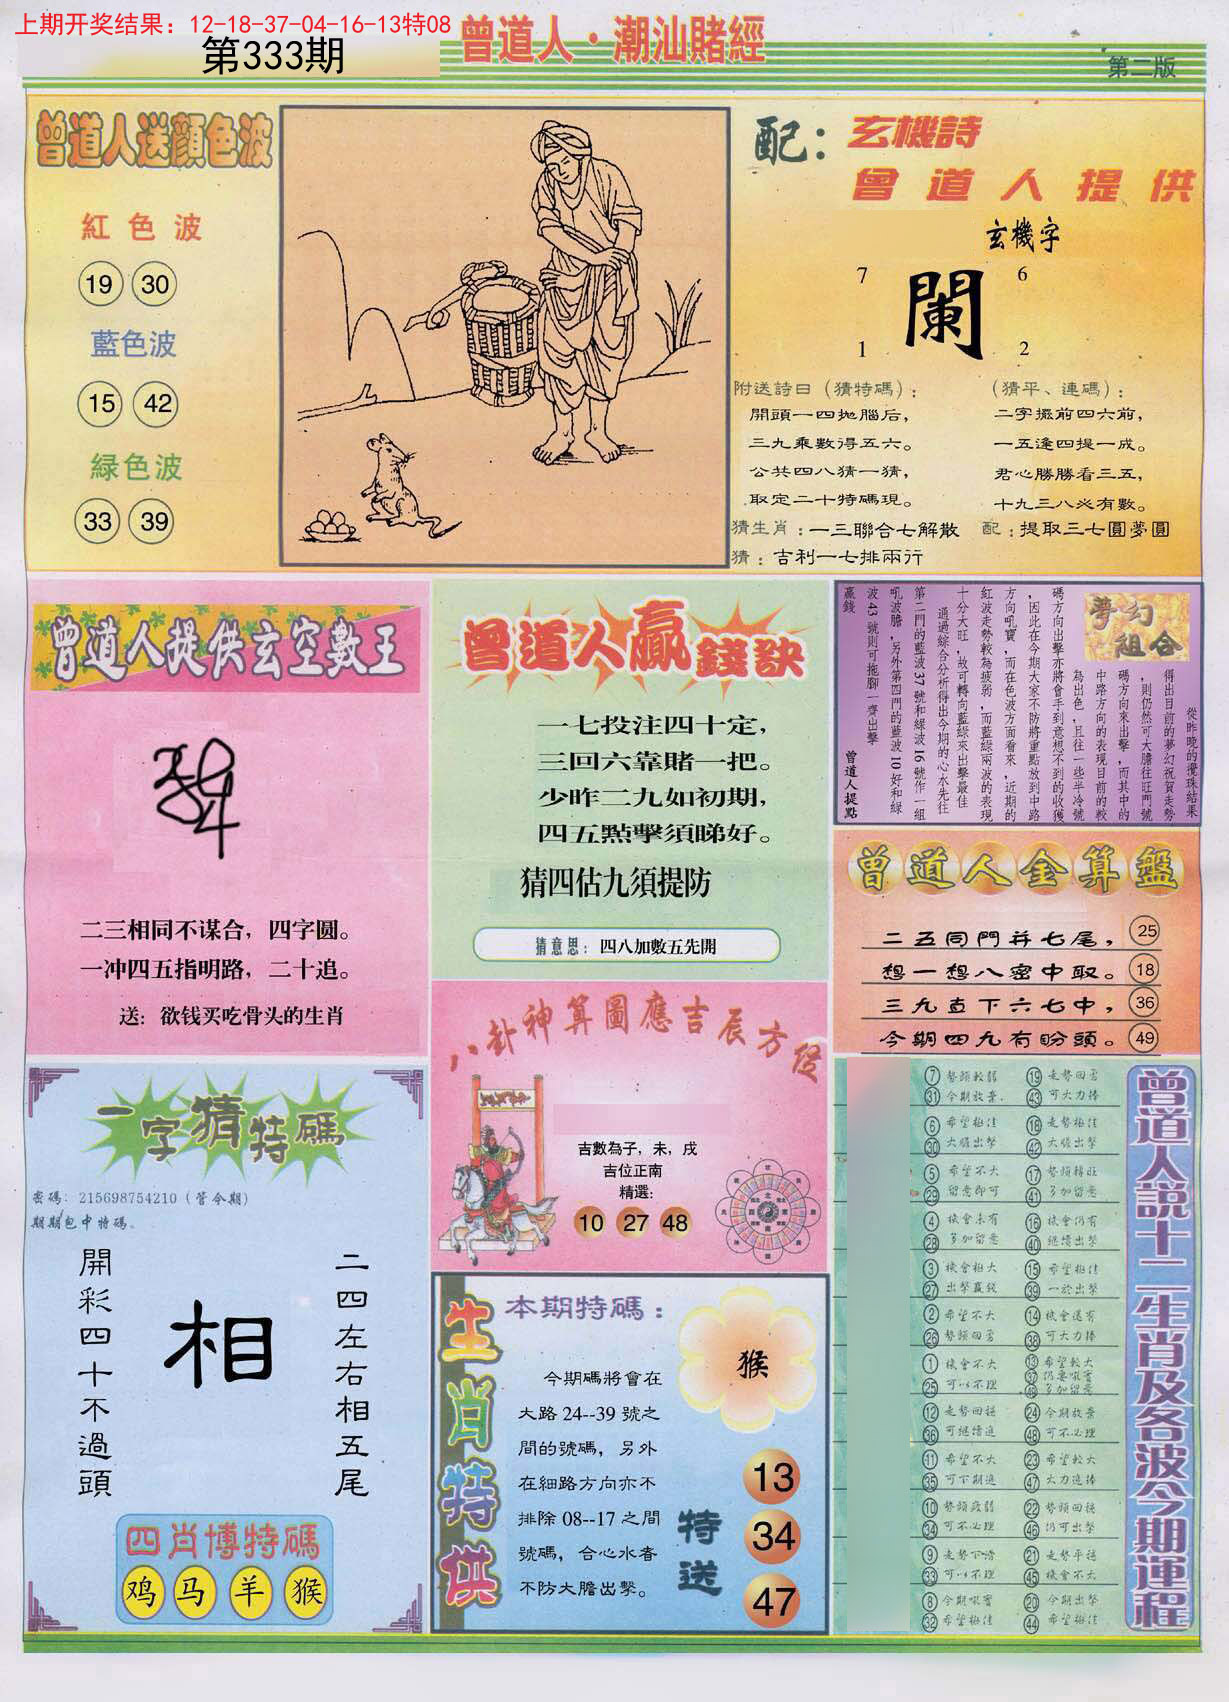 上期开奖结果：12-18-37-04-16-13特08
第333期
曾道人·潮汕賭經
第二版
曾道人送顏色波
紅色波
19 30
藍色波
15 42
緑色波
33 39
配：玄機詩
曾道人提供
玄機字
7 6
闌
1 2
附送詩曰（猜特碼）：
開頭一四抛腦后，
三九乘數得五六。
公共四八猜一猜，
取定二十特碼現。
猜生肖：一三聯合七解散
猜：吉利一七排兩行
（猜平、連碼）：
二字擺前四六前，
一五逢四提一成。
君心勝勝看三五，
十九三八必有數。
配：提取三七圓夢圓
曾道人提供玄空數王
二三相同不谋合，四字圆。
一冲四五指明路，二十追。
送：欲钱买吃骨头的生肖
曾道人贏錢訣
一七投注四十定，
三回六靠賭一把。
少昨二九如初期，
四五點擊須睇好。
猜四估九須提防
猜意思：四八加數五先開
夢幻組合
從昨晚的攪珠結果
得出目前的夢幻祝賀走勢
，則仍然可大膽往旺門號
碼方向來出擊，而其中的
中路方向的表現目前的較
為出色，且往一些半冷號
碼方向出擊亦將會手到意想不到的收獲
，因此在今期大家不防將重點放到中路
方向吼寶，而在色波方面看來，近期的
紅波走勢較為疲弱，而藍綠兩波的表現
十分大旺，故可轉向藍綠來出擊最佳
通過綜合分析得出今期的心水先往
第二門的藍波37號和緑波16號作一組
吼波膽，另外第四門的藍波10好和綠
波43號則可拖腳一齊出擊
贏錢
曾道人提點
曾道人金算盤
二五同門并七尾， 25
想一想八密中取。 18
三九直下六七中， 36
今期四九有盼頭。 49
八卦神算圖應吉辰方位
吉數為子，未，戌
吉位正南
精選：
10 27 48
一字猜特碼
密碼：215698754210（管今期）
期期包中特碼。
二四左右相五尾
相
開彩四十不過頭
四肖博特碼
鸡 马 羊 猴
生肖特供
本期特碼：
猴
今期碼將會在
大路24--39號之
間的號碼，另外
在細路方向亦不
排除08--17之間
號碼，合心水春
不防大膽出擊。
特送
13
34
47
曾道人説十二生肖及各波今期運程
7 勢頭較弱 19 走勢回勇
31 今期放棄. 43 可大力捧
6 希望極佳 18 走勢極佳
30 大膽出擊 42 大膽出擊
5 希望不大 17 勢頭轉旺
29 留意即可 41 多加留意
4 機會未有 16 機會仍有
28 多加留意 40 繼續出擊
3 機會極大 15 希望極佳
27 出擊贏錢 39 一於出擊
2 希望不大 14 機會還有
26 勢頭回勇 38 可大力捧
1 機會不大 13 希望較大
25 可以不理 37 仍要吼實
49 多加留意
12 走勢回穩 24 今期放棄
36 可繼續追 48 可不必理
11 希望不大 23 希望較大
35 可下期追 47 大力追捧
10 勢頭疲弱 22 勢頭回穩
34 可不必理 46 仍可出擊
9 走勢下滑 21 走勢平穩
33 可以不理 45 機會不大
8 今期吼實 20 今期出擊
32 希望極佳 44 希望極佳